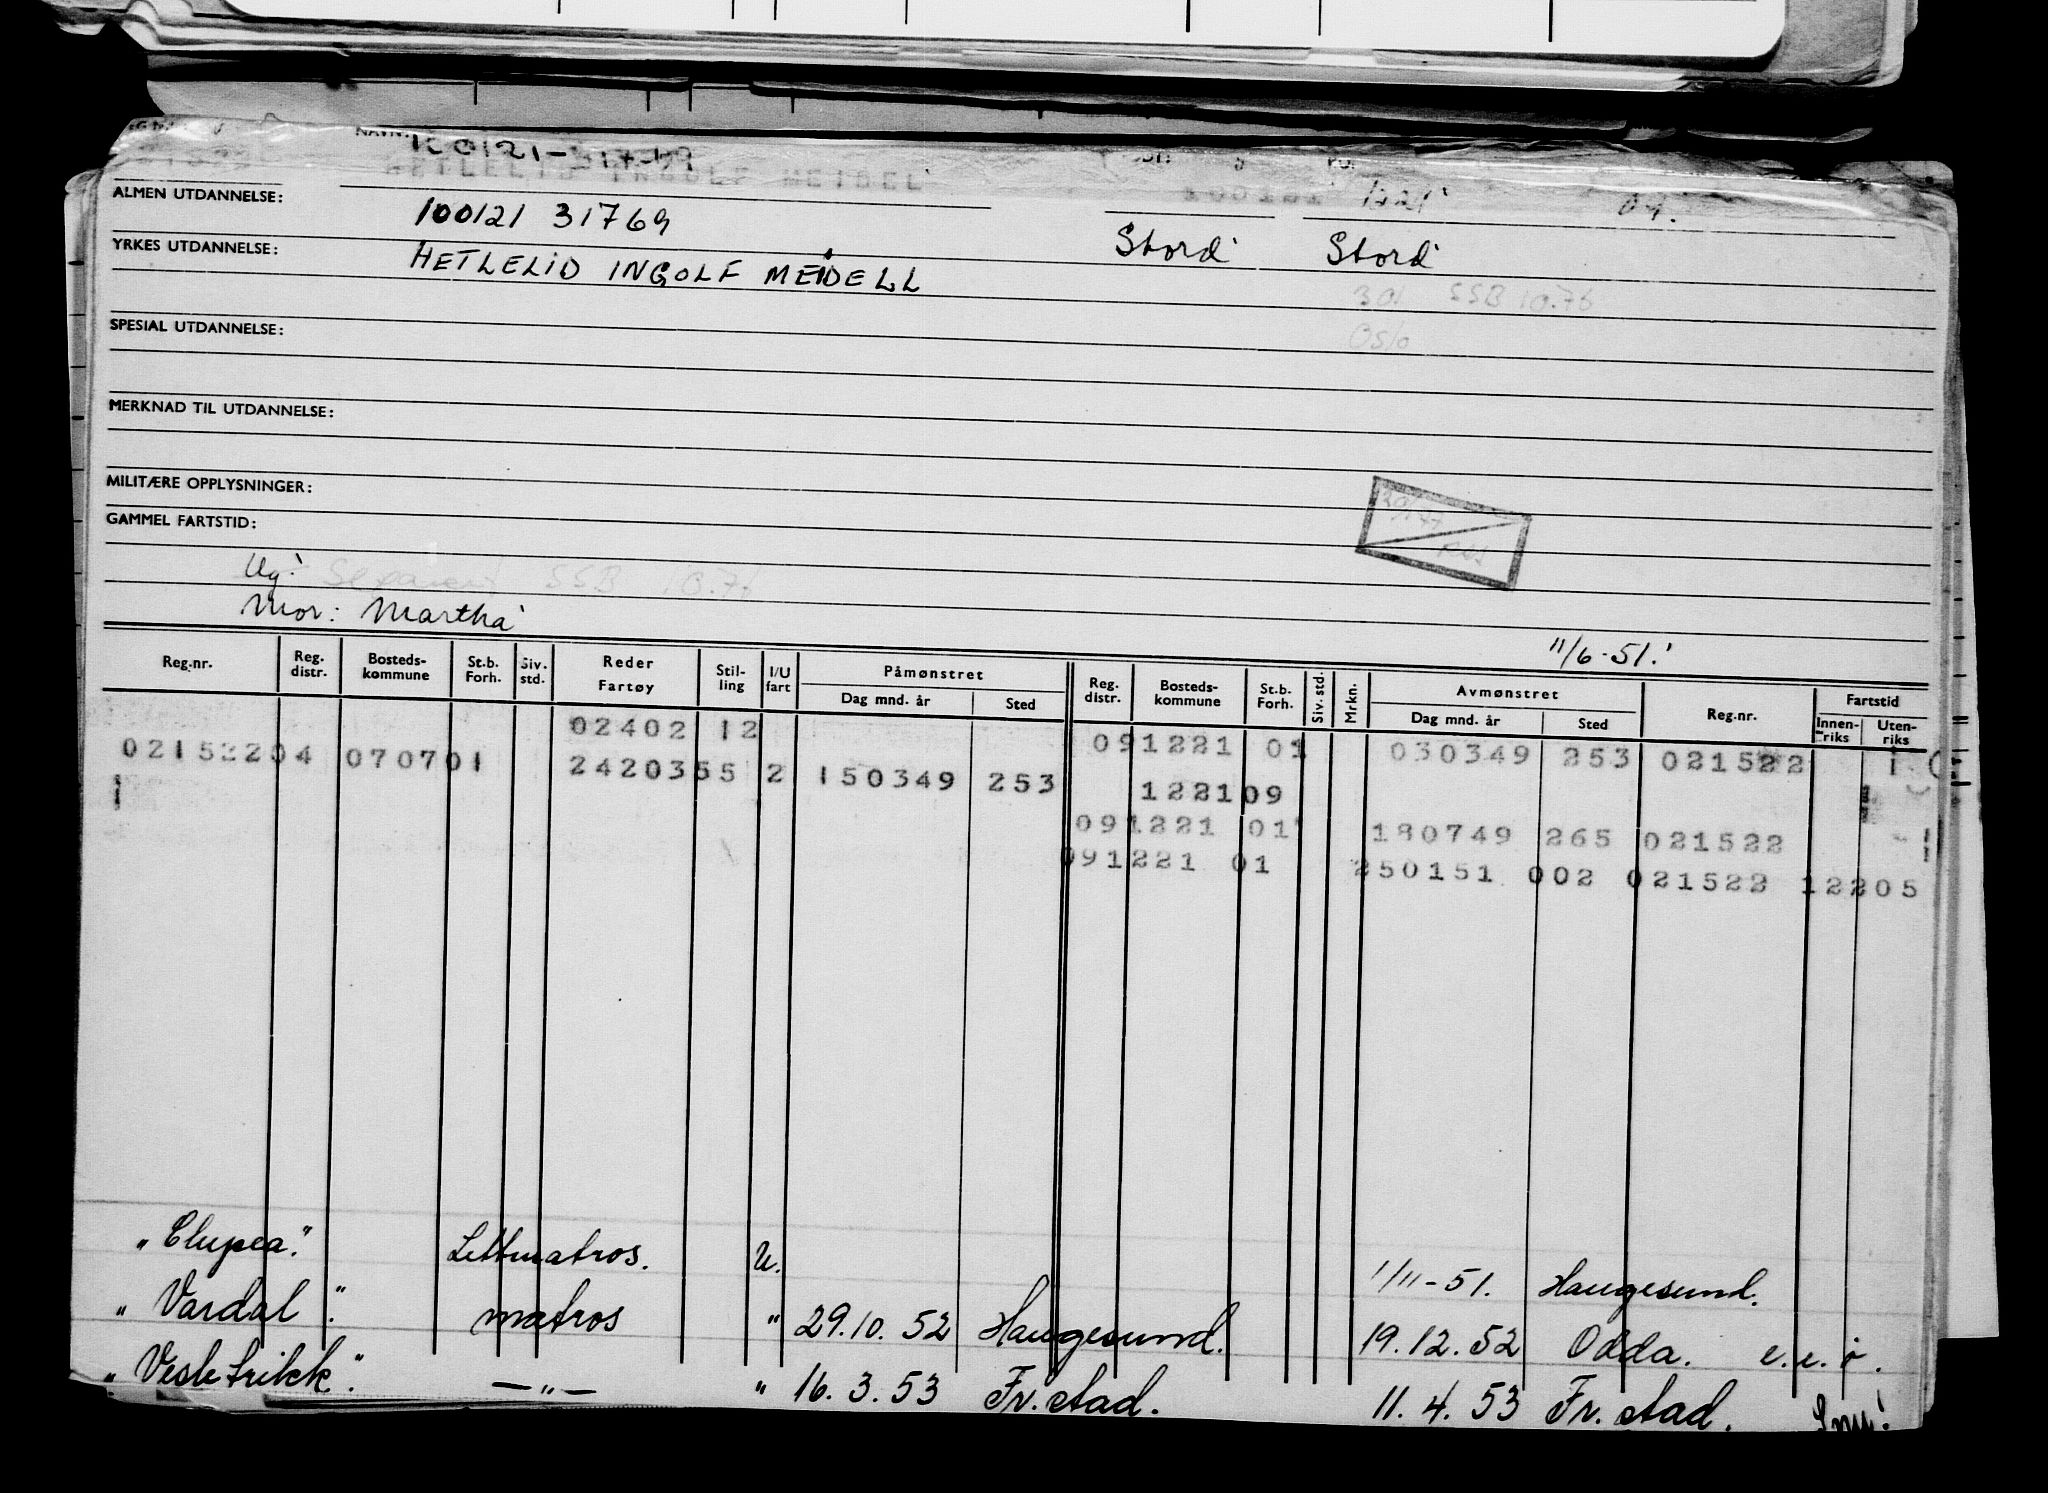 NAVN:
HETLELID INGOLF MEIDEL
1921
ALMEN UTDANNELSE:
100121 31769
Stord Stord
YRKES UTDANNELSE:
HETLELID INGOLF MEIDELL
301 SSB 10.76
Oslo
SPESIAL UTDANNELSE:
MERKNAD TIL UTDANNELSE:
MILITÆRE OPPLYSNINGER:
GAMMEL FARTSTID:
Ug! Separert SSB 10.76
Mor: Martha
11/6-51.!
Reg.nr. Reg. distr. Bosteds-kommune St.b. Forh. Siv. std. Reder Fartøy Stil-ling I/U fart Påmønstret Dag mnd. år Sted Reg. distr. Bosteds-kommune St.b. Forh. Siv. std. Mrkn. Avmønstret Dag mnd. år Sted Reg.nr. Fartstid Innen-riks Uten-riks
02402 12 091221 01 030349 253 021522
02152204 070701 2420355 2 150349 253 122109
091221 01 180749 265 021522
091221 01 250151 002 021522 12205
"Clupea." Lettmatros. U. 1/11-51. Haugesund.
"Vardal". matros " 29.10.52 Haugesund. 19.12.52 Odda. e.e.ö.
"Vesletrikk". —"— " 16.3.53 Fr.stad. 11.4.53 Fr.stad.